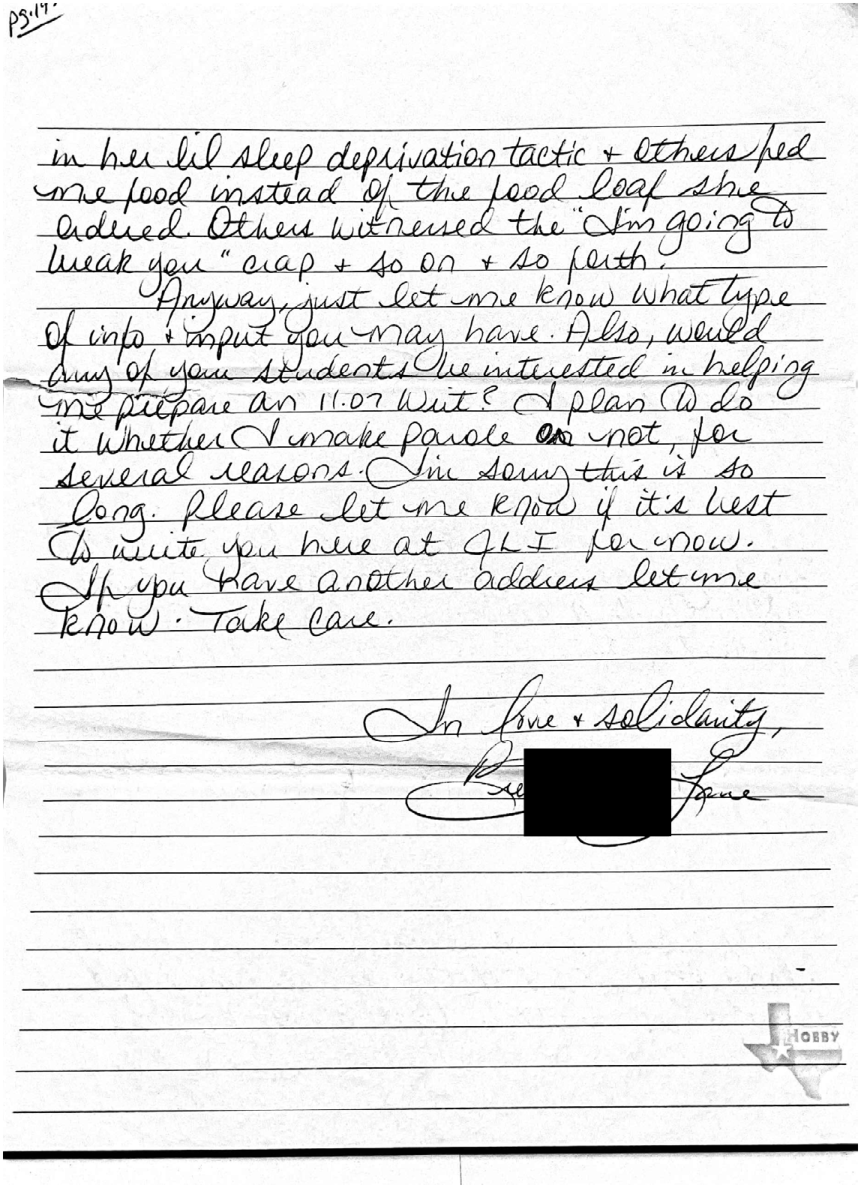 pg.19.
in her lil sleep deprivation tactic + others fed
me food instead of the food loaf she
ordered. Others witnessed the "I'm going to
break you" crap + so on + so forth.
Anyway, just let me know what type
of info + input you may have. Also, would
any of your students be interested in helping
me prepare an 11.07 Writ? I plan to do
it whether I make parole or not, for
several reasons. I'm sorry this is so
long. Please let me know if it's best
to write you here at JLI for now.
If you have another address let me
know. Take care.
In love + solidarity,
Lane
HOBBY